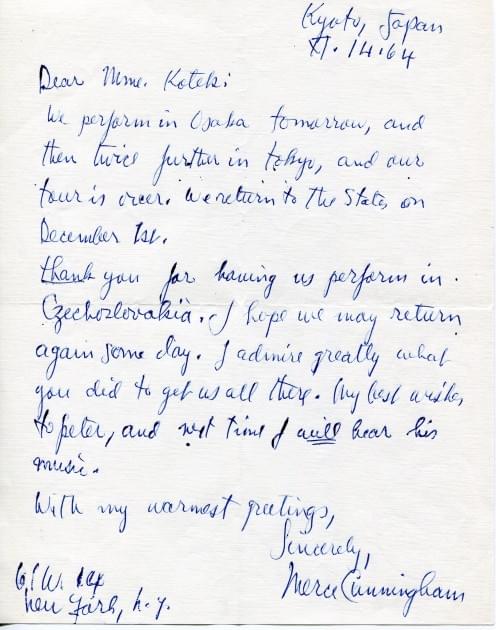 Kyoto, Japan
XI. 14. 64
Dear Mme. Kotek:
We perform in Osaka tomorrow, and
then twice further in tokyo, and our
tour is over. We return to the States on
December 1st.
thank you for having us perform in
Czechozlovakia. I hope we may return
again some day. I admire greatly what
you did to get us all there. My best wishes
to peter, and next time I will hear his
music.
With my warmest greetings,
Sincerely,
Merce Cunningham
61 W. 14
New York, N.Y.